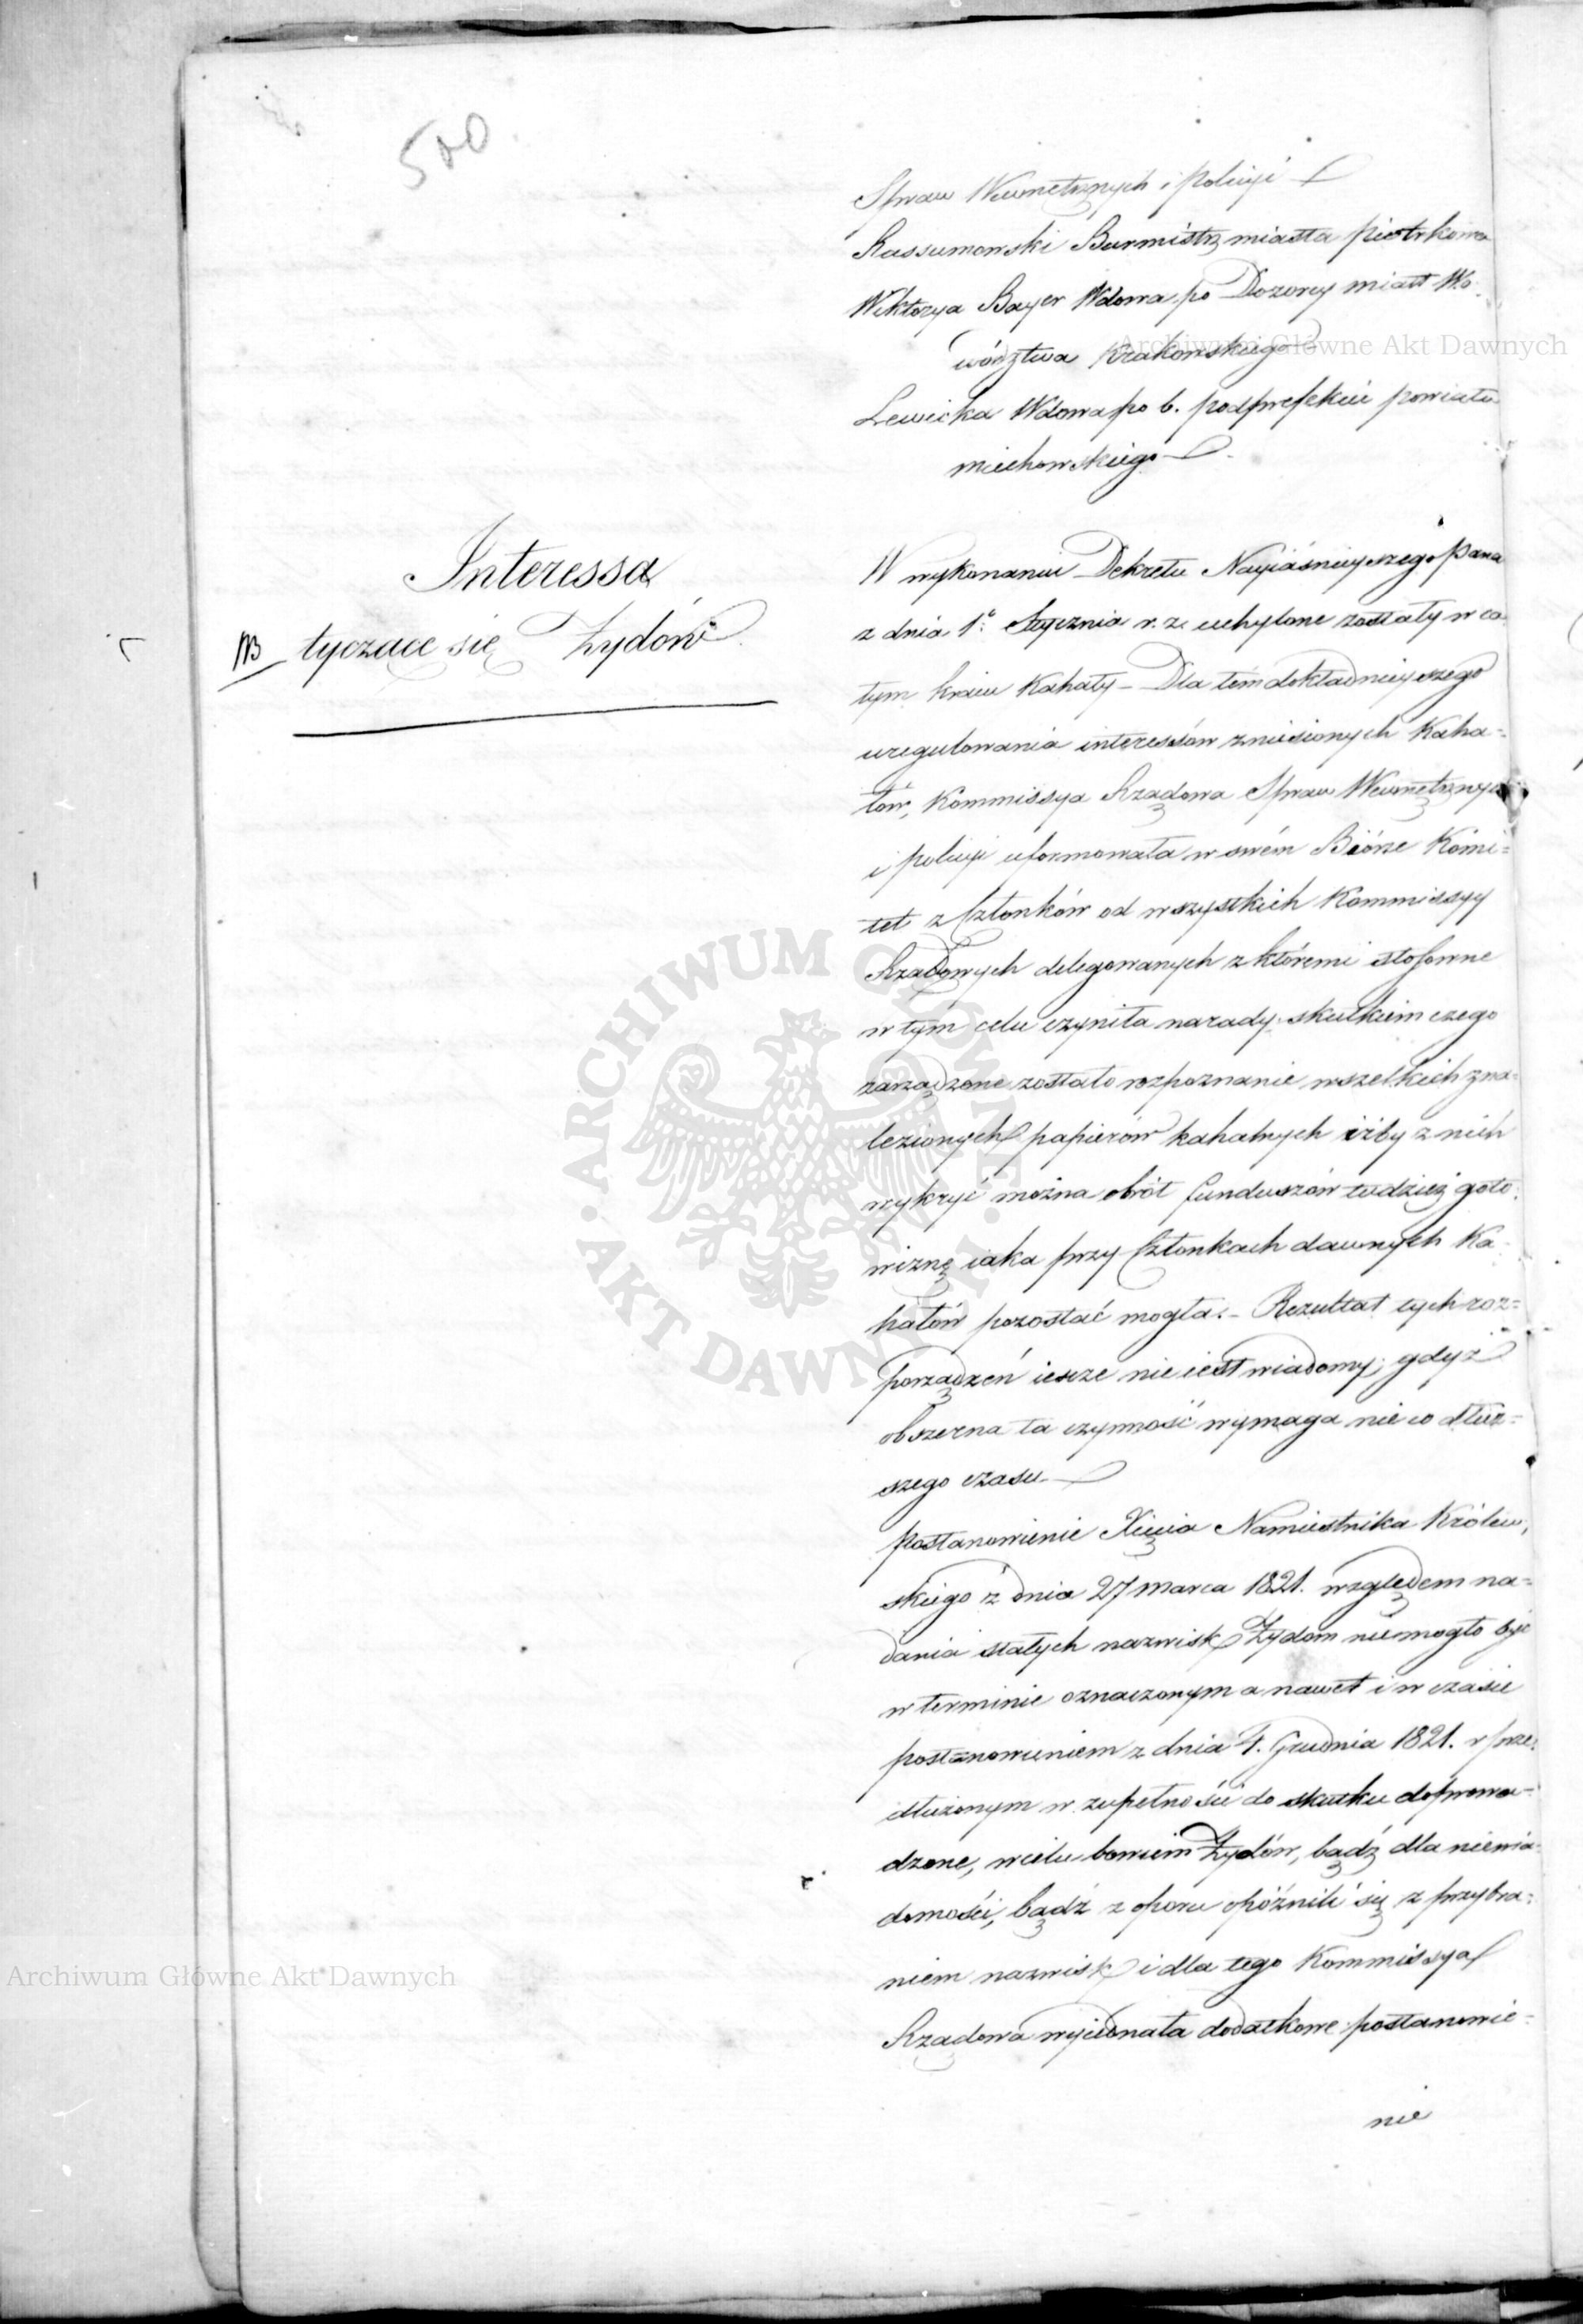 500
Spraw Wewnętrznych i Policyi
Rassumowski Burmistrz miasta Piotrkowa
Wiktorya Bayer Wdowa po Dozorcy miast Wo-
wództwa Krakowskiego
Lewicka Wdowa po b. podprefekcie powiatu
miechowskiego
Interessa
NB tyczące się Żydów
W wykonaniu Dekretu Nayiaśnieyszego Pana
z dnia 1o Stycznia r. z. uchylone zostały w ca-
łym kraiu Kahały – Dla tém dokładnieyszego
uregulowania interessów zniesionych Kaha=
łów, Kommissya Rządowa Spraw Wewnętrznych
i Policyi uformowała w swém Biórze Komi=
tet z Członków od wszystkich Kommissyy
Rządowych delegowanych z któremi stosowne
w tym celu czyniła narady, skutkiem czego
zarządzone zostało rozpoznanie wszelkich zna-
lezionych papierów kahalnych iżby z nich
wykryć można obrót funduszów tudzież goto-
wiznę iaka przy Członkach dawnych Ka-
hałów pozostać mogła. – Rezultat tych roz=
porządzeń iescze nie iest wiadomy, gdyż
obszerna ta czynność wymaga nieco dłuż=
szego czasu
Postanowienie Xięcia Namiestnika Królew-
skiego z dnia 27 Marca 1821. względem na=
dania stałych nazwisk Żydom niemogło być
w terminie oznaczonym a nawet i w czasie
postanowieniem z dnia 4. Grudnia 1821. r prze-
dłużonym w zupełności do skutku doprowa=
dzone, wielu bowiem Żydów, bądź dla niewia-
domości, bądź z oporu opóźnili się z przybra=
niem nazwisk i dla tego Kommissya
Rządowa wyiednała dodatkowe postanowie=
nie
Archiwum Główne Akt Dawnych
Archiwum Główne Akt Dawnych
ARCHIWUM GŁÓWNE AKT DAWNYCH